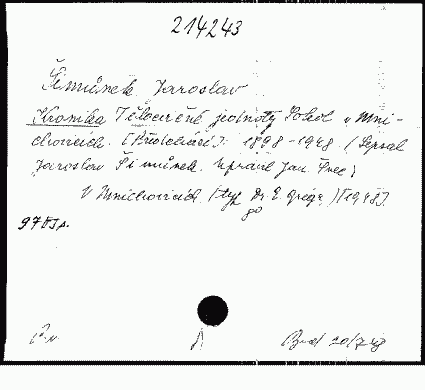 214243
Šimůnek Jaroslav
Kronika Tělocvičné jednoty Sokol v Mni-
chovicích. [Předmluva]: 1898-1948. (Sepsal
Jaroslav Šimůnek. Upravil Jan Švec)
V Mnichovicích, (typ. Dr. E. Grégr,) [1948].
97 s.
20/7 48